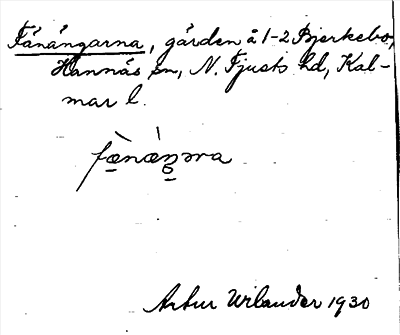 Fånångarna, gården å 1-2 Bjerkebo,
Hannäs sn, N. Tjusts hd, Kal-
mar l.
Artur Urlander 1930